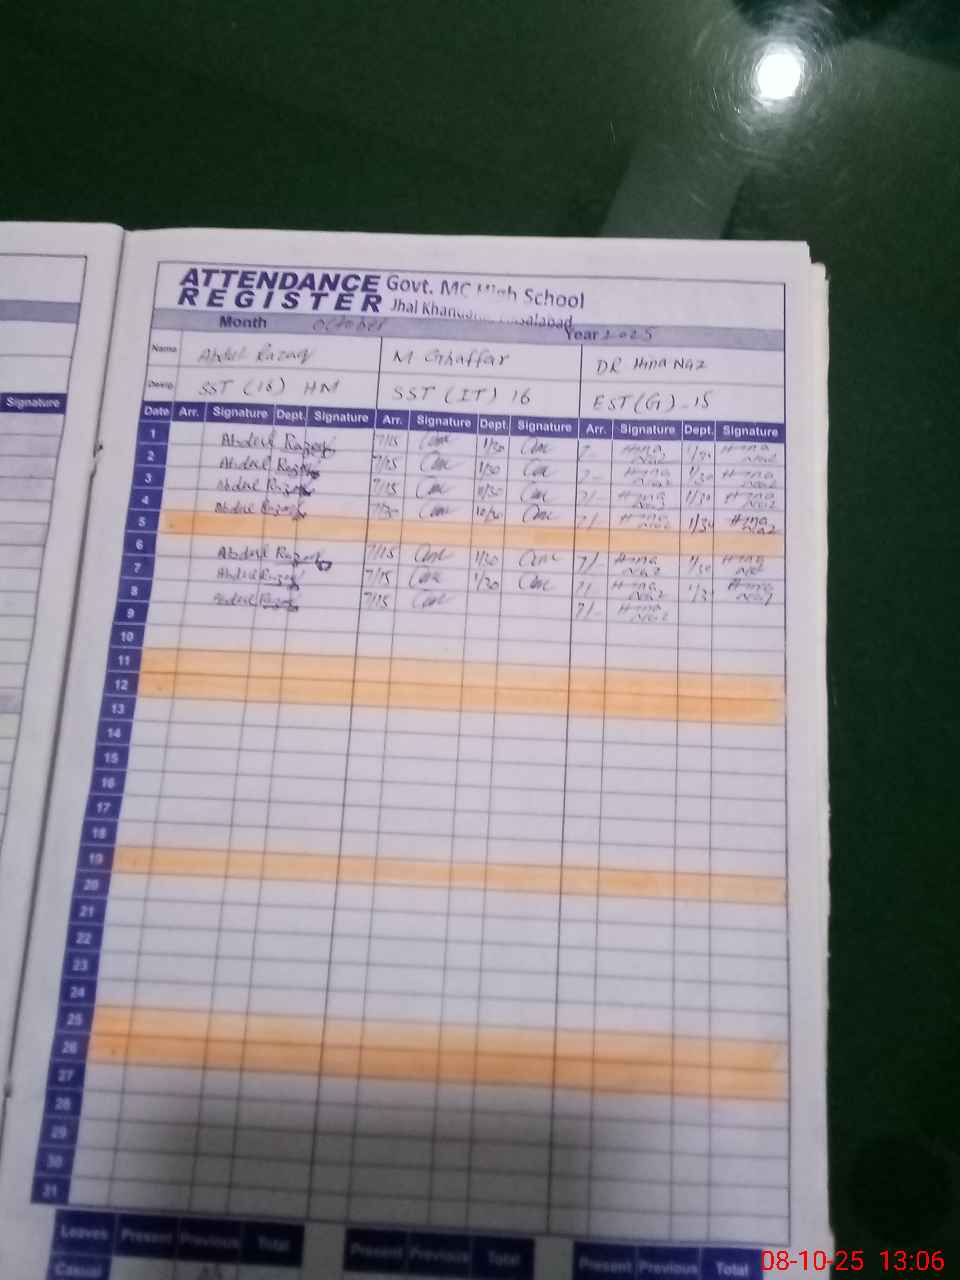 Signature
ATTENDANCE REGISTER
Govt. MC High School
Jhal
Month October Year 2025
Name Abdul Razaq M Ghaffar DR Hina Naz
SST (16) HM SST (IT) 16 EST(G)-15
Date Arr. Signature Dept. Signature Arr. Signature Dept. Signature Arr. Signature Dept. Signature
1 Abdul Razaq 7/15 1/30 Hina Naz 1/30 Hina Naz
2 Abdul Razaq 7/15 1/30 Hina Naz 1/30 Hina Naz
3 Abdul Razaq 7/15 Hina Naz 1/30 Hina Naz
4 Abdul Razaq Hina Naz 1/30 Hina Naz
5
6 Abdul Razaq 7/15 1/30 7/- Hina Naz 1/30 Hina Naz
7 Abdul Razaq 7/15 1/30 Hina Naz Hina Naz
8 Abdul Razaq 7/15 7/- Hina Naz
9
10
11
12
13
14
15
16
17
18
19
20
21
22
23
24
25
26
27
28
29
30
31
Leaves Present Previous Total Present Previous Total Present Previous Total
Casual
08-10-25 13:06